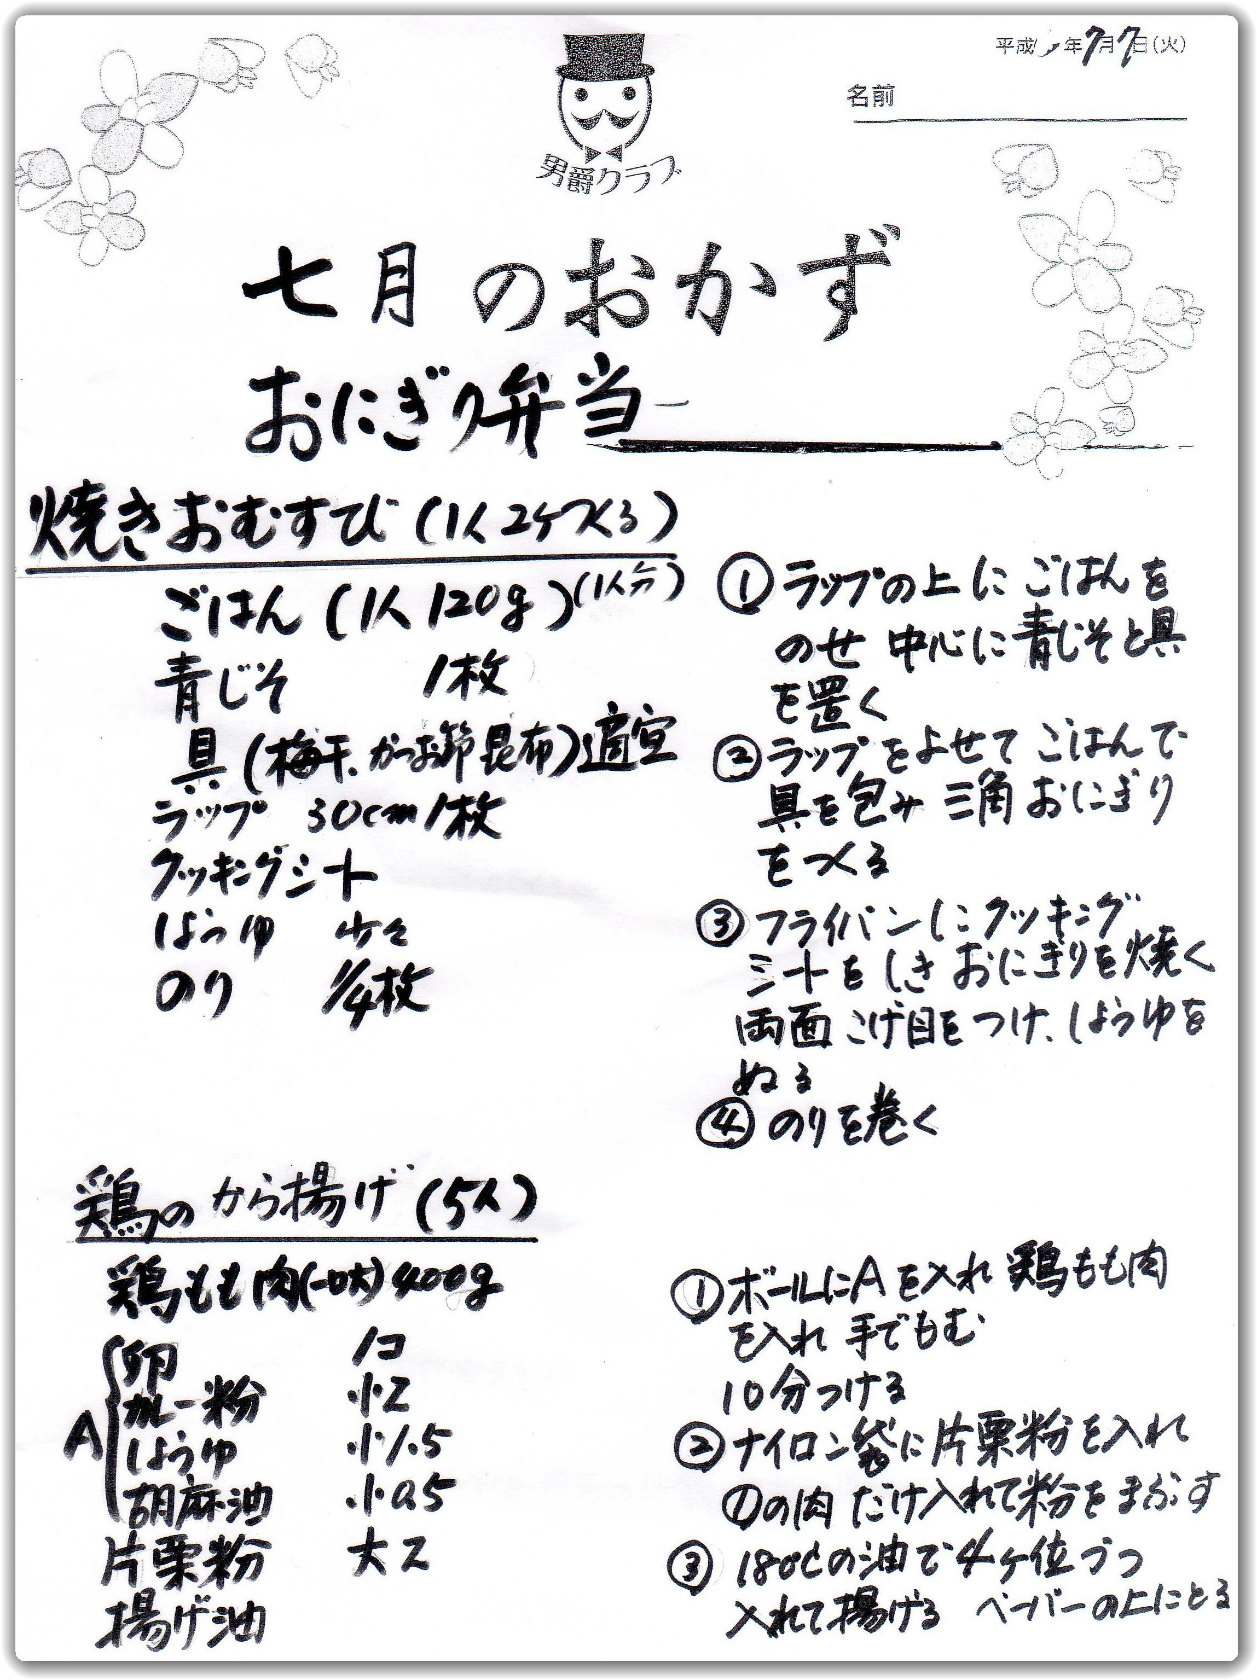 平成 年7月7日(火)
名前
男爵クラブ
七月のおかず
おにぎり弁当
焼きおむすび(1人2ケつくる)
ごはん(1人120g)(1人分)
青じそ 1枚
具(梅干、かつお節昆布)適宜
ラップ 30cm1枚
クッキングシート
しょうゆ 少々
のり 1/4枚
①ラップの上にごはんを
のせ 中心に青じそと具
を置く
②ラップをよせてごはんで
具を包み 三角おにぎり
をつくる
③フライパンにクッキング
シートをしきおにぎりを焼く
両面こげ目をつけ、しょうゆを
ぬる
④のりを巻く
鶏のから揚げ(5人)
鶏もも肉(一口大)400g
A
卵 1コ
カレー粉 小2
しょうゆ 小1.5
胡麻油 小0.5
片栗粉 大2
揚げ油
①ボールにAを入れ鶏もも肉
を入れ手でもむ
10分つける
②ナイロン袋に片栗粉を入れ
①の肉だけ入れて粉をまぶす
③180℃の油で4ヶ位づつ
入れて揚げる ペーパーの上にとる